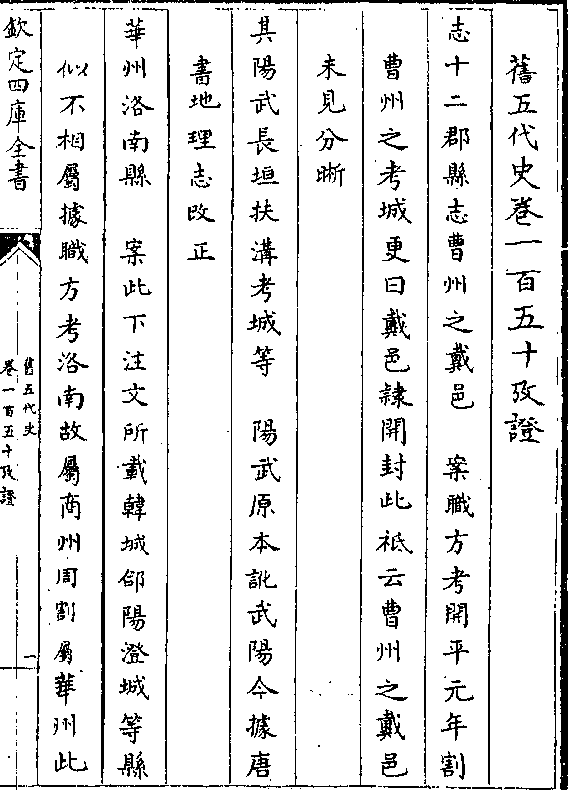 舊五代史卷一百五十攷證
志十二郡縣志曹州之戴邑　案職方考開平元年割
曹州之考城更曰戴邑隷開封此祗云曹州之戴邑
未見分晰
其陽武長垣扶溝考城等　陽武原本訛武陽今據唐
書地理志改正
華州洛南縣　案此下注文所載韓城郃陽澄城等縣
似不相屬據職方考洛南故屬商州周割屬華州此
欽定四庫全書
舊五代史
卷一百五十攷證
一